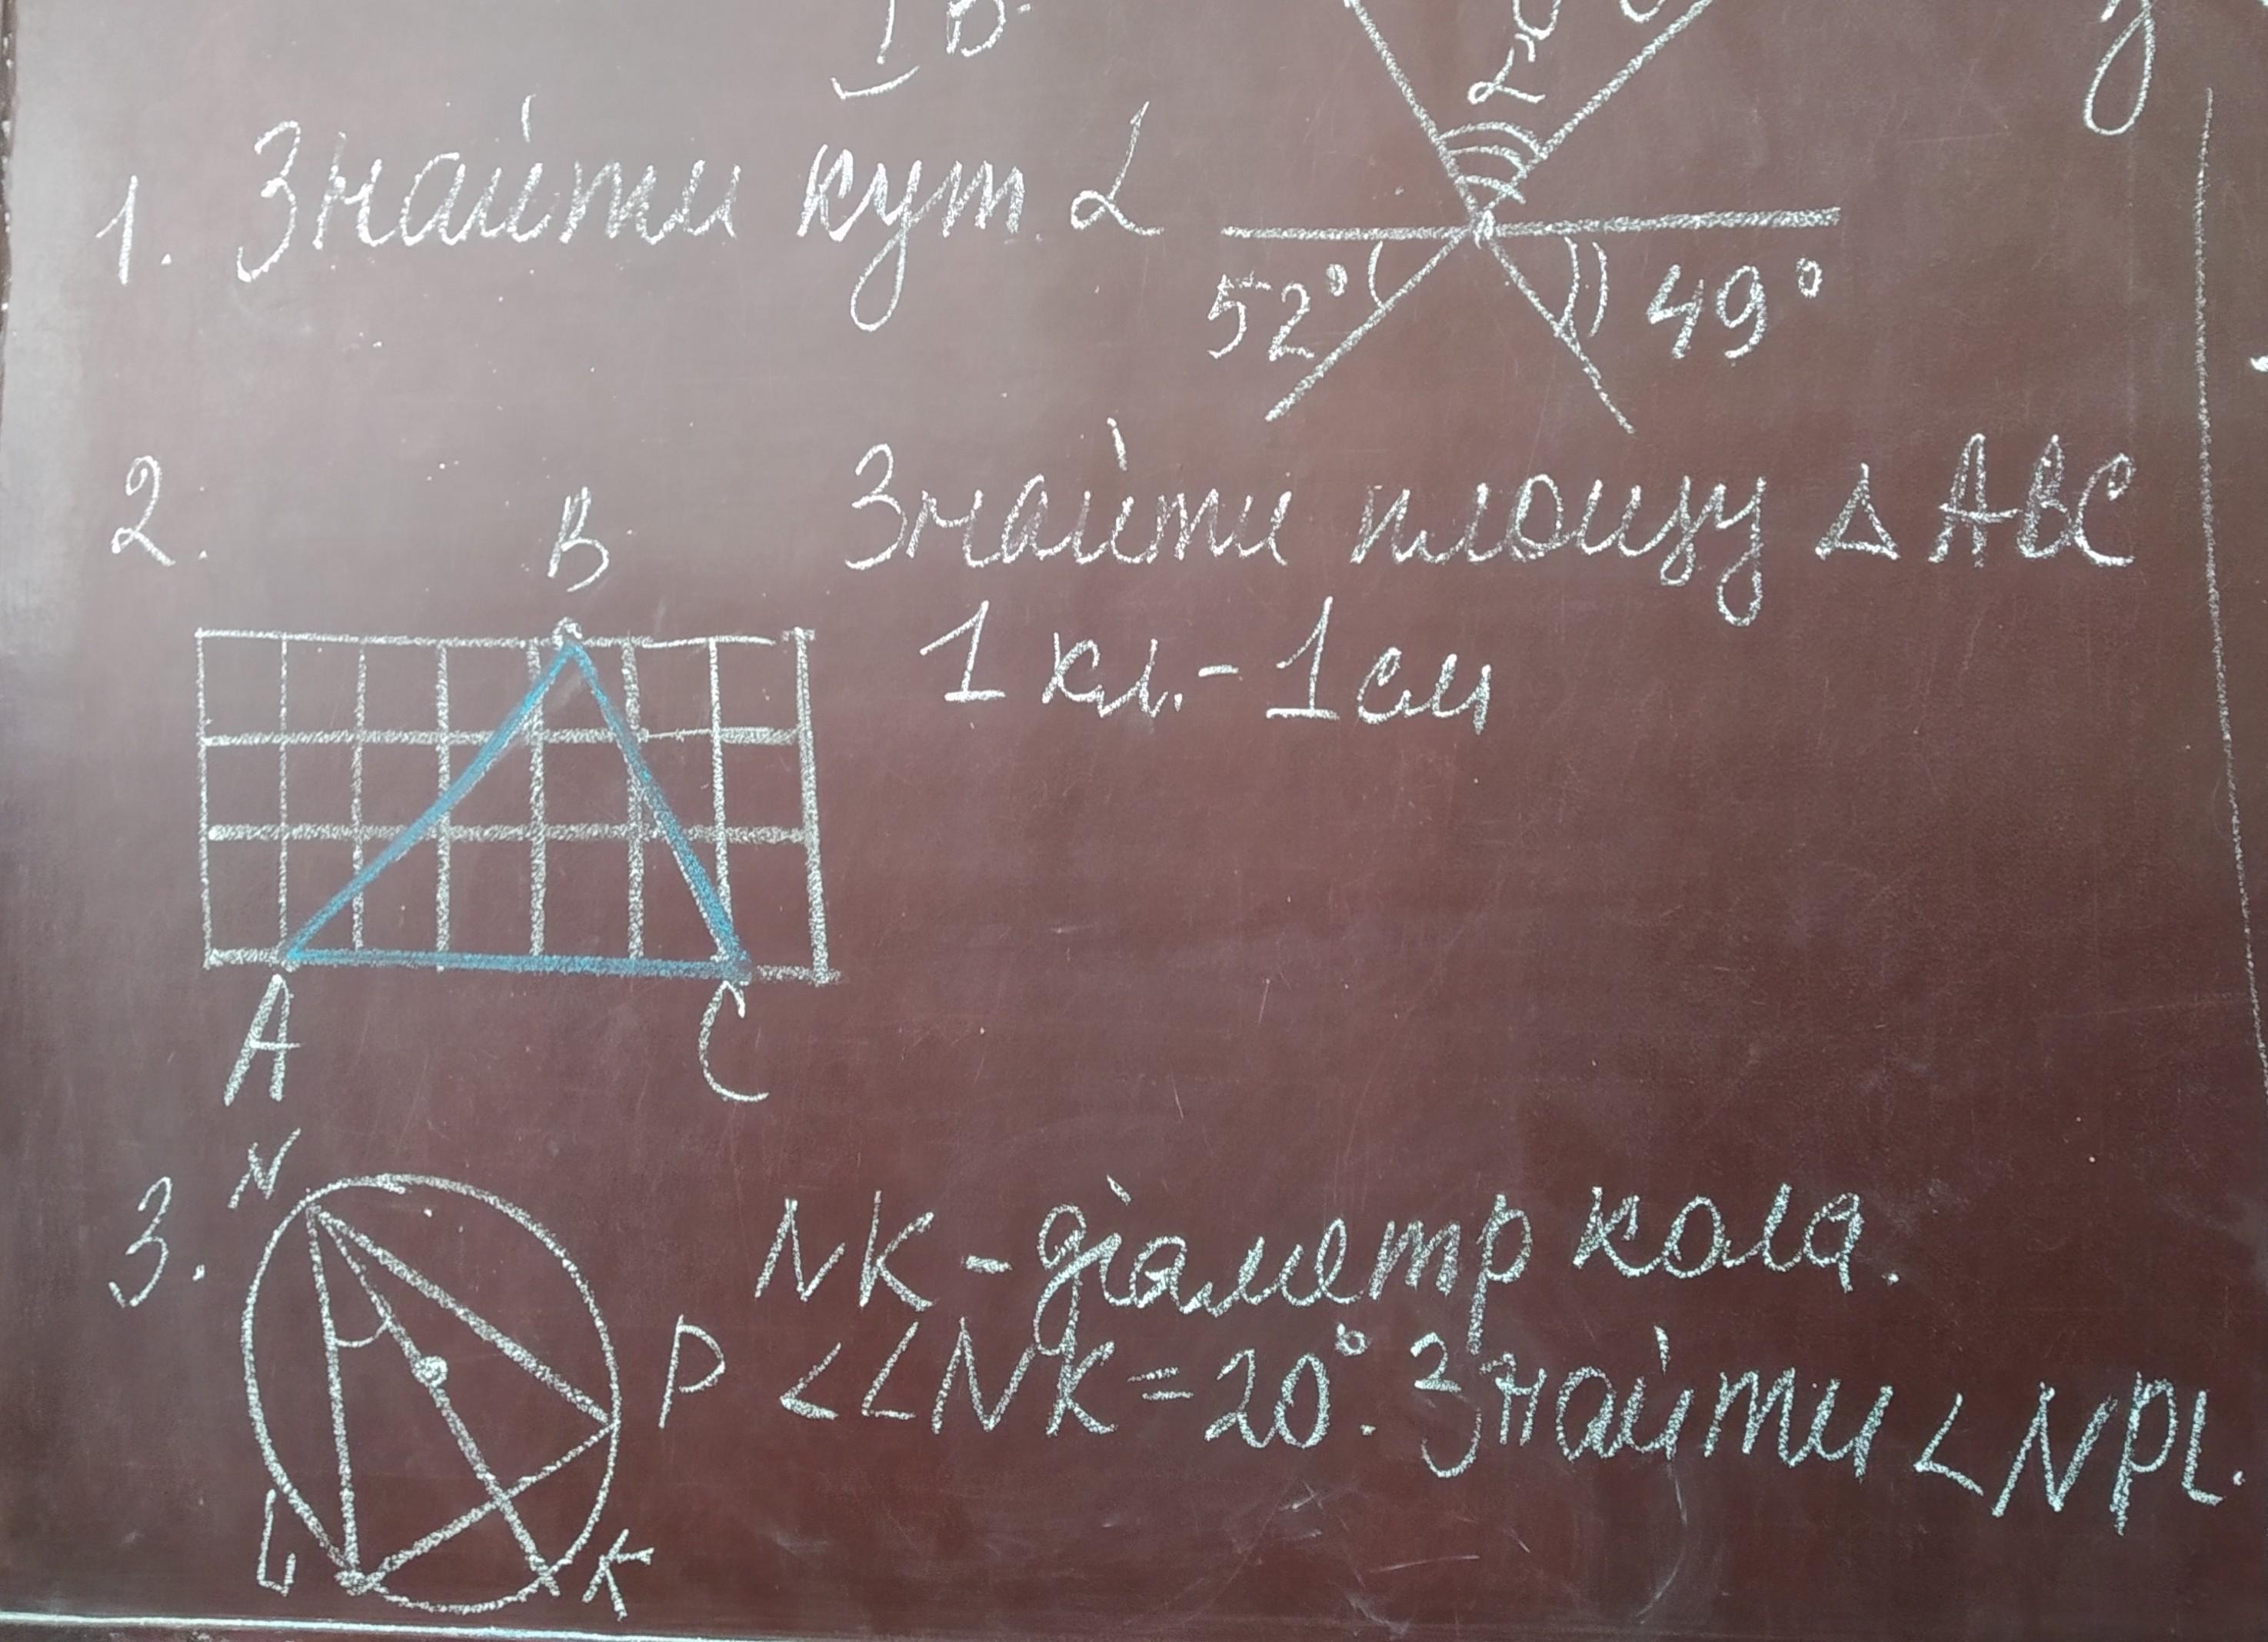 I в.
α
1. Знайти кут α
52° 49°
2. B Знайти площу Δ ABC
1 кл. - 1 см
A C
N
3. NK - діаметр кола.
P <LNK = 20°. Знайти < NPL.
L K